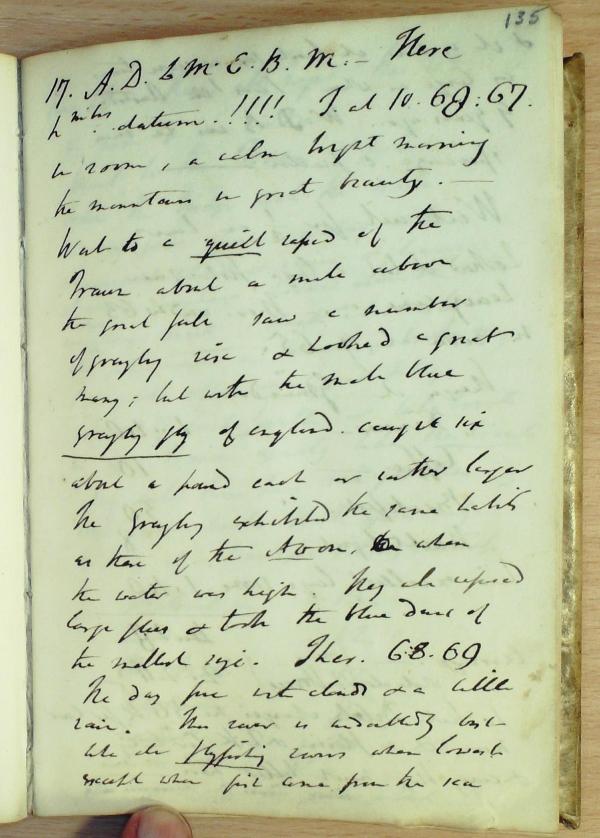 135
17. A.D. b M. E. B. M. – Here
datum.!!!! T. at 10. 69: 67.
in room, a calm bright morning
the mountains in great beauty. —
Went to a quill rapid of the
Traun about a mile above
the great fall saw a number
of grayling rise & hooked a great
many; but with the male blue
grayling fly of england. caught six
about a pound each or rather larger
The Grayling exhibited the same habits
as those of the Avon, when
the water was high. They all refused
large flies & took the blue duns of
the smallest size. Ther. 68. 69
The day fine with clouds & a little
rain. This river is undoubtedly best
like all flyfishing rivers when lowest
except when fish come from the sea